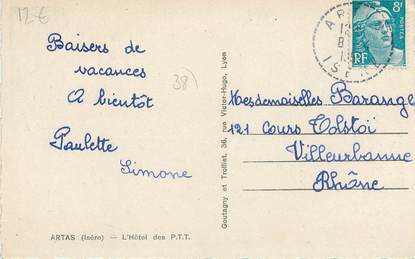 12 €
Baisers de
vacances
A bientôt
Paulette
Simone
38
ARTAS (Isère) — L'Hôtel des P.T.T.
Goutagny et Trolliet, 36, rue Victor-Hugo, Lyon
8F
POSTES
RF
ISERE
Mesdemoiselles Barange
121 Cours Tolstoï
Villeurbanne
Rhône